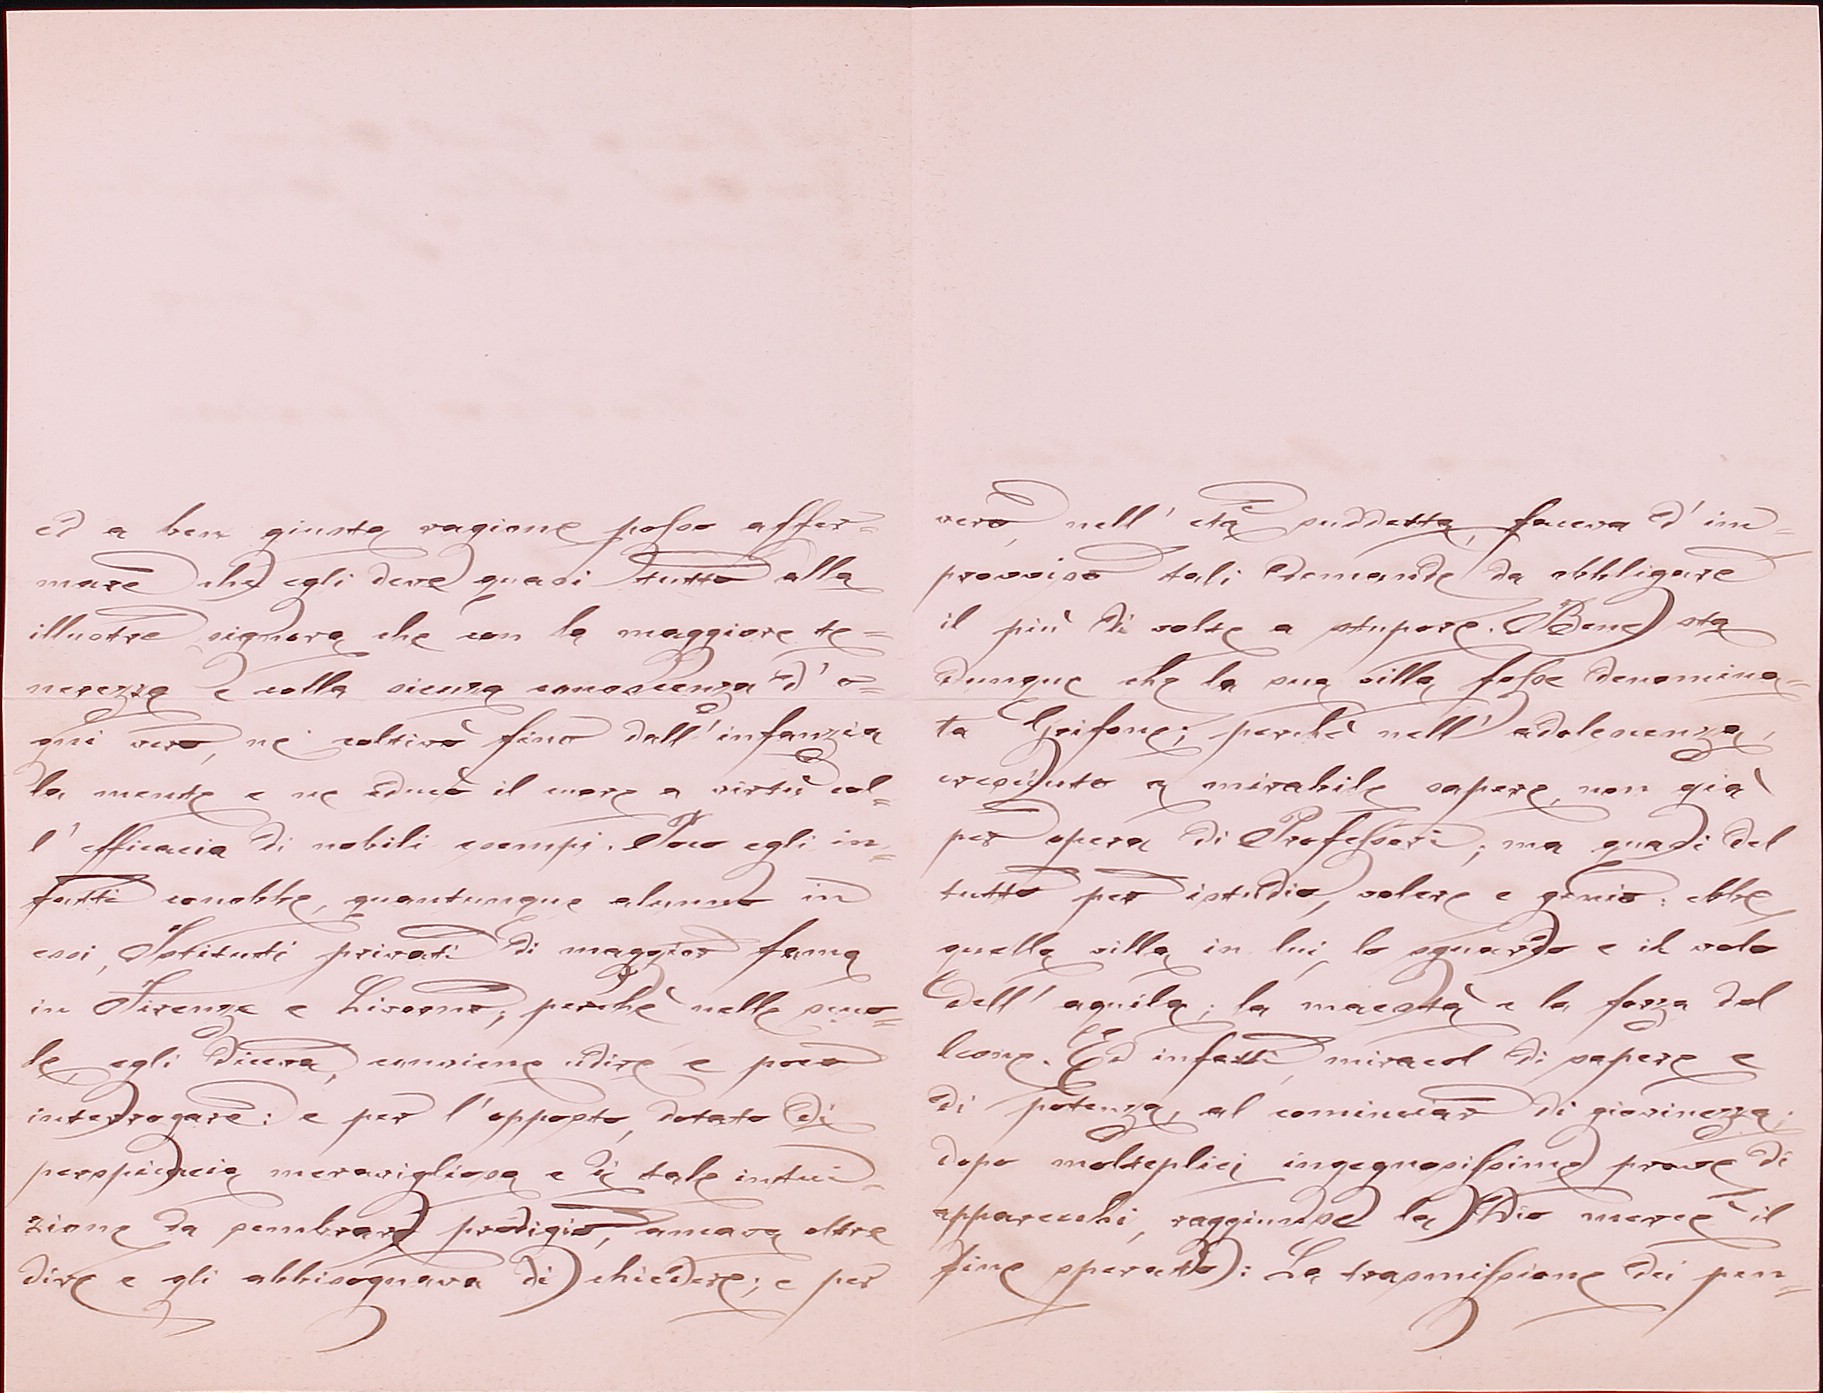 ed a ben giusta ragione posso affer=
mare che egli deve quasi tutto alla
illustre signora che con la maggiore te=
nerezza e colla sicura conoscenza d'o=
gni vero, ne coltivò fino dall'infanzia
la mente e ne educò il cuore a virtù col=
l'efficacia di nobili esempi. Poco egli in=
fatti conobbe, quantunque alunno in
essi, Istituti privati di maggior fama
in Firenze e Livorno; perchè nelle scuo=
le, egli diceva, conviene udire e poco
interrogare: e per l'opposto, dotato di
perspicacia meravigliosa e di tale intui=
zione da sembrare prodigio, amava oltre
dire e gli abbisognava di chiedere; e per
vero, nell'età suddetta, faceva d'im=
provviso tali domande da obbligare
il più di volte a stupore. Bene sta
dunque che la sua villa fosse denomina=
ta Grifone; perchè nell'adolescenza,
cresciuto a mirabile sapere, non già
per opera di Professori; ma quasi del
tutto per istudio, volere e genio: ebbe
quella villa in lui, lo sguardo e il volo
dell'aquila; la maestà e la forza del
leone. Ed infatti, miracol di sapere e
di potenza, al cominciar di giovinezza;
dopo molteplici ingegnosissime prove di
apparecchi, raggiunse la Dio mercè il
fine sperato: La trasmissione dei pen=